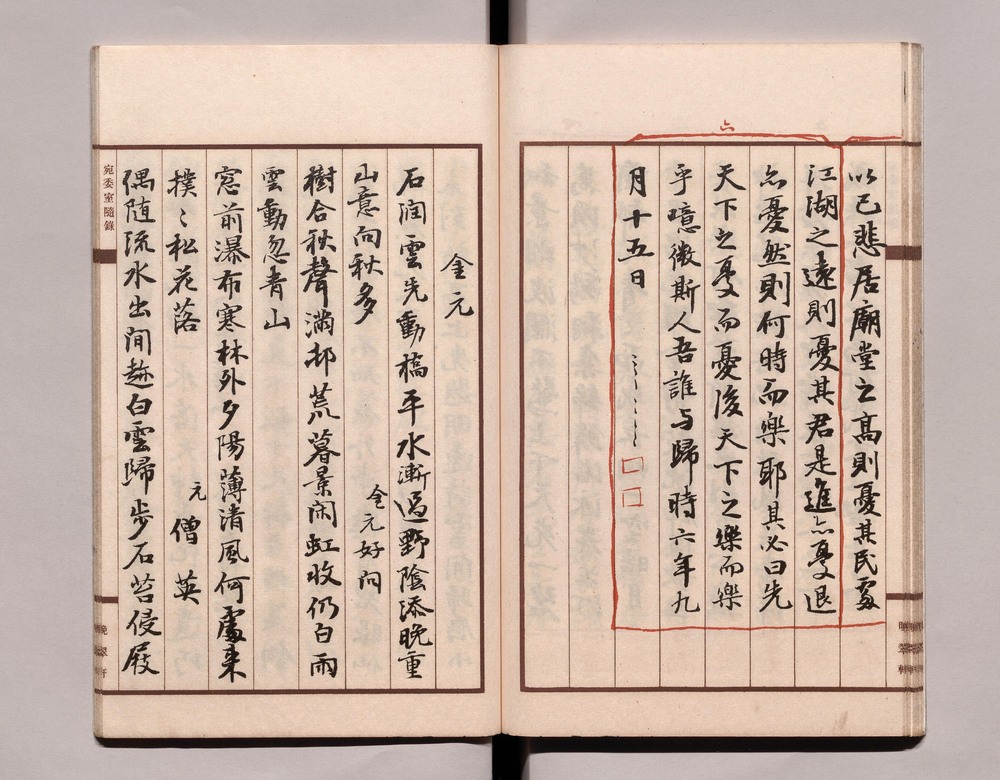 六
以己悲居廟堂之高則憂其民處
江湖之遠則憂其君是進亦憂退
亦憂然則何時而樂耶其必曰先
天下之憂而憂後天下之樂而樂
乎噫微斯人吾誰与歸時六年九
月十五日
金元
石润雲先動橋平水漸過野陰添晚重
山意向秋多 金元好问
樹合秋聲满邨荒暮景闲虹收仍白雨
雲動忽青山
窓前瀑布寒林外夕陽薄清風何處来
撲〻松花落 元僧英
偶随流水出间趂白雲歸步石苔侵屐
宛委室隨錄
晚翠轩